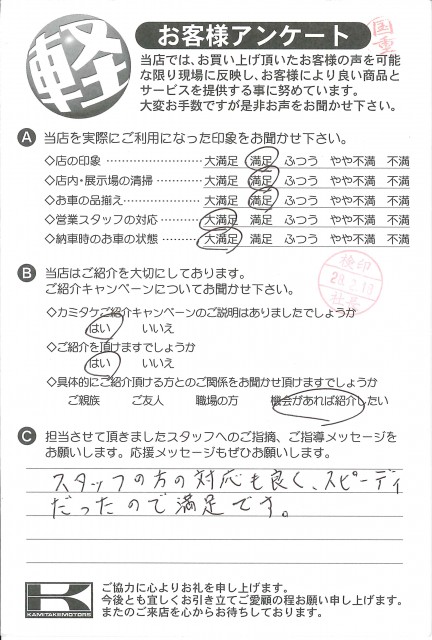 軽
お客様アンケート
国重
当店では、お買い上げ頂いたお客様の声を可能
な限り現場に反映し、お客様により良い商品と
サービスを提供する事に努めています。
大変お手数ですが是非お声をお聞かせ下さい。
A 当店を実際にご利用になった印象をお聞かせ下さい。
◇店の印象 ………………… 大満足 満足 ふつう やや不満 不満
◇店内・展示場の清掃 ………… 大満足 満足 ふつう やや不満 不満
◇お車の品揃え ……………… 大満足 満足 ふつう やや不満 不満
◇営業スタッフの対応 ………… 大満足 満足 ふつう やや不満 不満
◇納車時のお車の状態 ………… 大満足 満足 ふつう やや不満 不満
B 当店はご紹介を大切にしております。
ご紹介キャンペーンについてお聞かせ下さい。
検印
社長
◇カミタケご紹介キャンペーンのご説明はありましたでしょうか
はい いいえ
◇ご紹介を頂けますでしょうか
はい いいえ
◇具体的にご紹介頂ける方とのご関係をお聞かせ頂けますでしょうか
ご親族 ご友人 職場の方 機会があれば紹介したい
C 担当させて頂きましたスタッフへのご指摘、ご指導メッセージを
お願いします。応援メッセージもぜひお願いします。
スタッフの方の対応も良く、スピーディ
だったので満足です。
K
KAMITAKEMOTORS
ご協力に心よりお礼を申し上げます。
今後とも宜しくお引き立てご愛顧の程お願い申し上げます。
またのご来店を心からお待ちしております。